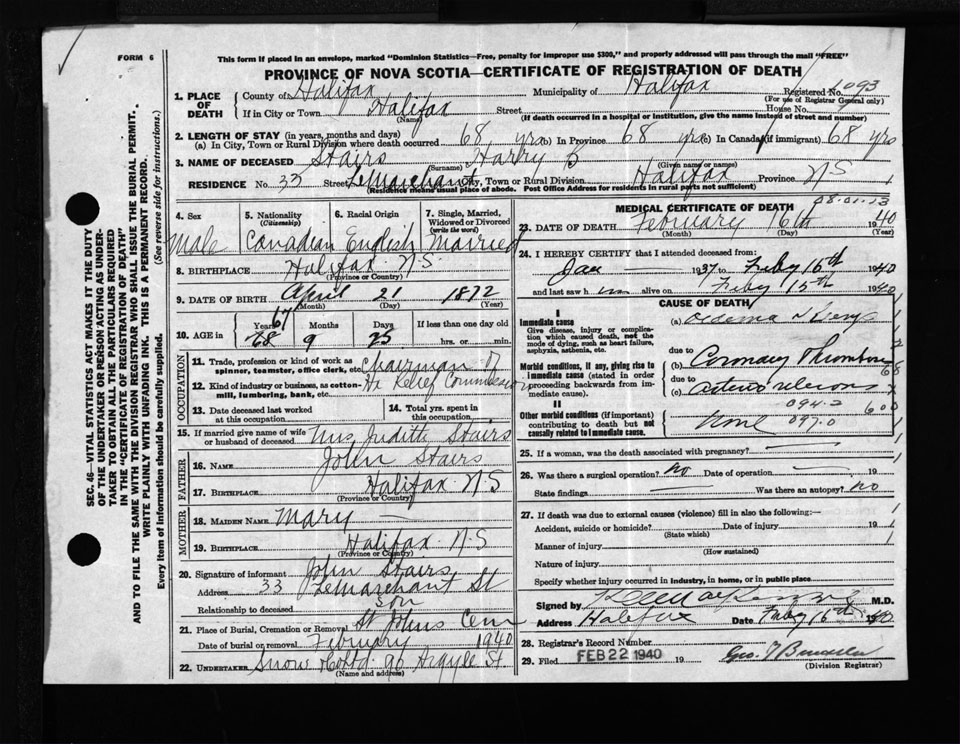 FORM 6
This form if placed in an envelope, marked "Dominion Statistics—Free, penalty for improper use $300," and properly addressed will pass through the mail "FREE"
PROVINCE OF NOVA SCOTIA—CERTIFICATE OF REGISTRATION OF DEATH
1. PLACE OF DEATH
County of Halifax Municipality of Halifax Registered No. 1093
(For use of Registrar General only)
If in City or Town Halifax Street House No.
(Name) (If death occurred in a hospital or institution, give the name instead of street and number)
2. LENGTH OF STAY (in years, months and days)
(a) In City, Town or Rural Division where death occurred 68 yrs (b) In Province 68 yrs (c) In Canada (if immigrant) 68 yrs
3. NAME OF DECEASED Stairs Harry B
(Surname) (Given name or names)
RESIDENCE No. 33 Street LeMarchant City, Town or Rural Division Halifax Province NS
(Residence means usual place of abode. Post Office Address for residents in rural parts not sufficient)
4. Sex Male
5. Nationality (Citizenship) Canadian
6. Racial Origin English
7. Single, Married, Widowed or Divorced (write the word) Married
8. BIRTHPLACE Halifax N.S.
(Province or Country)
9. DATE OF BIRTH April 21 1872
(Month) (Day) (Year)
10. AGE in Years Months Days If less than one day old
67
68 9 25 hrs. or min.
OCCUPATION
11. Trade, profession or kind of work as spinner, teamster, office clerk, etc. Chairman of
12. Kind of industry or business, as cotton-mill, lumbering, bank, etc. Hx Relief Commission
13. Date deceased last worked at this occupation
14. Total yrs. spent in this occupation
15. If married give name of wife or husband of deceased Mrs Judith Stairs
FATHER
16. NAME John Stairs
17. BIRTHPLACE Halifax N S
(Province or Country)
MOTHER
18. MAIDEN NAME Mary —
19. BIRTHPLACE Halifax N.S
(Province or Country)
20. Signature of informant John Stairs
Address 33 LeMarchant St
Relationship to deceased son
21. Place of Burial, Cremation or Removal St Johns Cem
Date of burial or removal February 1940
22. UNDERTAKER Snow & Co Ltd. 90 Argyle St.
(Name and address)
MEDICAL CERTIFICATE OF DEATH
23. DATE OF DEATH February 16th 1940
(Month) (Day) (Year)
24. I HEREBY CERTIFY that I attended deceased from:
Jan — 1937 to Feby 15th 1940
and last saw him alive on Feby 15th 1940
CAUSE OF DEATH
I
Immediate cause
Give disease, injury or complication which caused death, not the mode of dying, such as heart failure, asphyxia, asthenia, etc.
(a) oedema of lungs
due to
Morbid conditions, if any, giving rise to immediate cause (stated in order proceeding backwards from immediate cause).
Coronary Thrombosis
due to
(c) arterio sclerosis
094.2
600
II
Other morbid conditions (if important) contributing to death but not causally related to immediate cause. None 097.0
25. If a woman, was the death associated with pregnancy? —
26. Was there a surgical operation? no Date of operation — 19
State findings — Was there an autopsy? no
27. If death was due to external causes (violence) fill in also the following:
Accident, suicide or homicide? Date of injury 19
(State which)
Manner of injury
(How sustained)
Nature of injury
Specify whether injury occurred in industry, in home, or in public place
Signed by M.D.
Address Halifax Date Feby 16th 40
28. Registrar's Record Number
29. Filed FEB 22 1940 19 Geo.
(Division Registrar)
SEC. 46—VITAL STATISTICS ACT MAKES IT THE DUTY
OF THE UNDERTAKER OR PERSON ACTING AS UNDER-
TAKER TO OBTAIN ALL THE PARTICULARS REQUIRED
IN THE "CERTIFICATE OF DEATH"
AND TO FILE THE SAME WITH THE DIVISION REGISTRAR WHO SHALL ISSUE THE BURIAL PERMIT.
WRITE PLAINLY WITH UNFADING INK. THIS IS A PERMANENT RECORD.
Every item of information should be carefully supplied. (See reverse side for instructions.)